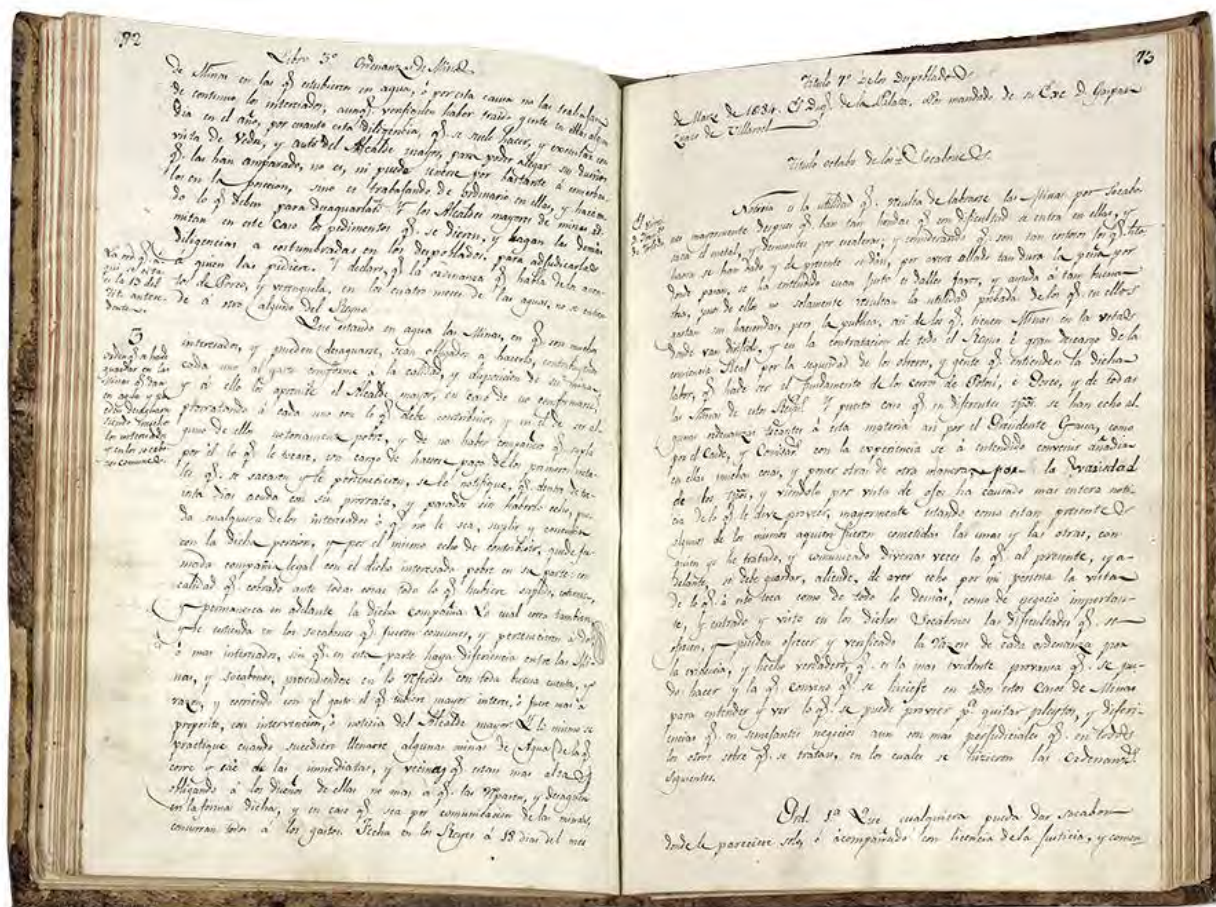 72
Libro 3º Ordenanzas de Minas
de Minas en las q̃ estubieren en agua, ó por esta causa no las trabajan
de continuo los interesados, aunq̃ verifiquen haber traido gente en ellas algun
dia en el año, por cuanto esta diligencia, q̃ se suele hacer, y executar con
vista de Vedor, y auto del Alcalde mayor, para poder alegar sus dueños
q̃ las han amparado, no es, ni puede tenerse por bastante á conserbar
los en la posecion, sino es trabajando de ordinario en ellas, y hacien
do lo q̃ deben para desaguarlas. Y los Alcaldes mayores de minas ad
mitan en este caso los pedimentos q̃ se dieren, y hagan las demas
diligencias acostumbradas en los despoblados, para adjudicarlas
á quien las pidiere. Y declaro, q̃ la ordenanza q̃ habla de la
de Porco, y Verenguela, en los cuatro meses de las aguas, no se entien
de á otro alguno del Reyno
3
Que estando en agua las Minas, en q̃ son muchos
interesados, y pueden desaguarse, sean obligados á hacerlo, contribuyendo
cada uno al gasto conforme á la calidad, y disposicion de sus minas,
y á ello los apremie el Alcalde mayor, en caso de no conformarse,
prorratando á cada uno con lo q̃ debe contribuir, y en el de ser al
guno de ellos notoriamente pobre, y de no haber compañero q̃ supla
por él lo q̃ le tocare, con cargo de hacerse pago de los primeros meta
les q̃ se sacaren y le pertenecieren, se le notifique, q̃ dentro de
ta dias acuda con su prorrata, y pasados sin haberlo echo, pue
da cualquiera de los interesados ó q̃ no le sea, suplir y
con la dicha porcion, y por el mismo echo de contribuir, quede for
mada compañia legal con el dicho interesado pobre en su parte: con
calidad q̃ cobrado ante todas cosas todo lo q̃ hubiere suplido,
y permanesca en adelante la dicha compañia. Lo cual corra tambien,
y se entienda en los socabones q̃ fueren comunes, y pertenecieren á dos
ó mas interesados, sin q̃ en esta parte haya diferencia entre las Mi
nas, y socabones, procediendose en lo referido con toda buena cuenta, y
razon, y corriendo con el gasto el q̃ tubiere mayor interes, ó fuere mas á
proposito, con intervencion, ó noticia del Alcalde mayor. Y lo mismo se
practique cuando sucediere llenarse algunas minas de Agua de la q̃
corre ó cae de las inmediatas, y vecinas q̃ estan mas altas
obligando á los dueños de ellas no mas á q̃ las reparen, y desaguen
en la forma dicha, y en caso q̃ sea por comunicacion de las minas,
concurran todos á los gastos. Fecha en los Reyes á 13 dias del mes
73
Titulo 7º de los despoblados
de Marzo de 1684. El Duq̃ de la Palata. Por mandado de su Exc. D. Gaspar
de Villarroel
Titulo octabo de los Socabones
Notoria es la utilidad q̃ resulta de labrarse las Minas por socabo
nes mayormente despues q̃ han tan hondas q̃ con dificultad se entra en ellas, y
saca el metal, y desmontes por escaleras; y considerando q̃ son tan costosos los q̃ hta
hasta se han dado y de presente se dan, por averse allado tan dura la peña por
donde pasan, se ha entendido cuan justo es dalles favor, y ayuda á tan buena
obra, pues de ello no solamente resultan la utilidad probada de los q̃ en ellos
gastan sus haciendas, pero la publica, asi de los q̃ tienen Minas en las vetas
donde van dirijidos, y en la contratacion de todo el Reyno é gran descargo de la
conciencia Real por la seguridad de los obreros, y gente q̃ entienden la dicha
labor, q̃ ha de ser el fundamento de los cerros de Potosi, é Porco, y de todas
las Minas de estos Reynos. Y puesto caso q̃ en diferentes tpõs. se han echo al
gunas ordenanzas tocantes á esta materia asi por el Presidente Gasca, como
por el Conde, y Comisarios con la experiencia se á entendido convenir añadir
en ellas muchas cosas, y poner otras de otra manera por la variedad
de los tpõs, y viendolo por vista de ojos ha causado mas entera noti
cia de lo q̃ se deve proveer, mayormente estando como estan presentes
algunos de los mismos aquien fueron cometidas las unas y las otras, con
quien yo he tratado, y comunicado diversas veces lo q̃ al presente, y a
delante, se debe guardar, aliende, de aver echo por mi persona la visita
de lo q̃ á esto toca como de todo lo demas, como de negocio importan
te, y entrado y visto en los dichos Socabones las dificultades q̃ se
ofrecen, y pueden ofrecer y verificado la razon de cada ordenanza para
la evidencia, y hecho verdadero, q̃ es la mas evidente provanza q̃ se pu
do hacer y la q̃ convino q̃ se hiciese en todos estos casos de Minas
para entender y ver lo q̃ se puede proveer pª quitar pleytos, y diferi
encias q̃ en semejantes negocios aun son mas perjudiciales q̃ en todos
los otros sobre q̃ se tratan, en los cuales se hicieron las Ordenanzs.
siguientes.
Ord. 1ª Que cualquiera pueda dar socabon
donde le pareciere solo, ó acompañado con licencia de la Justicia, y comen